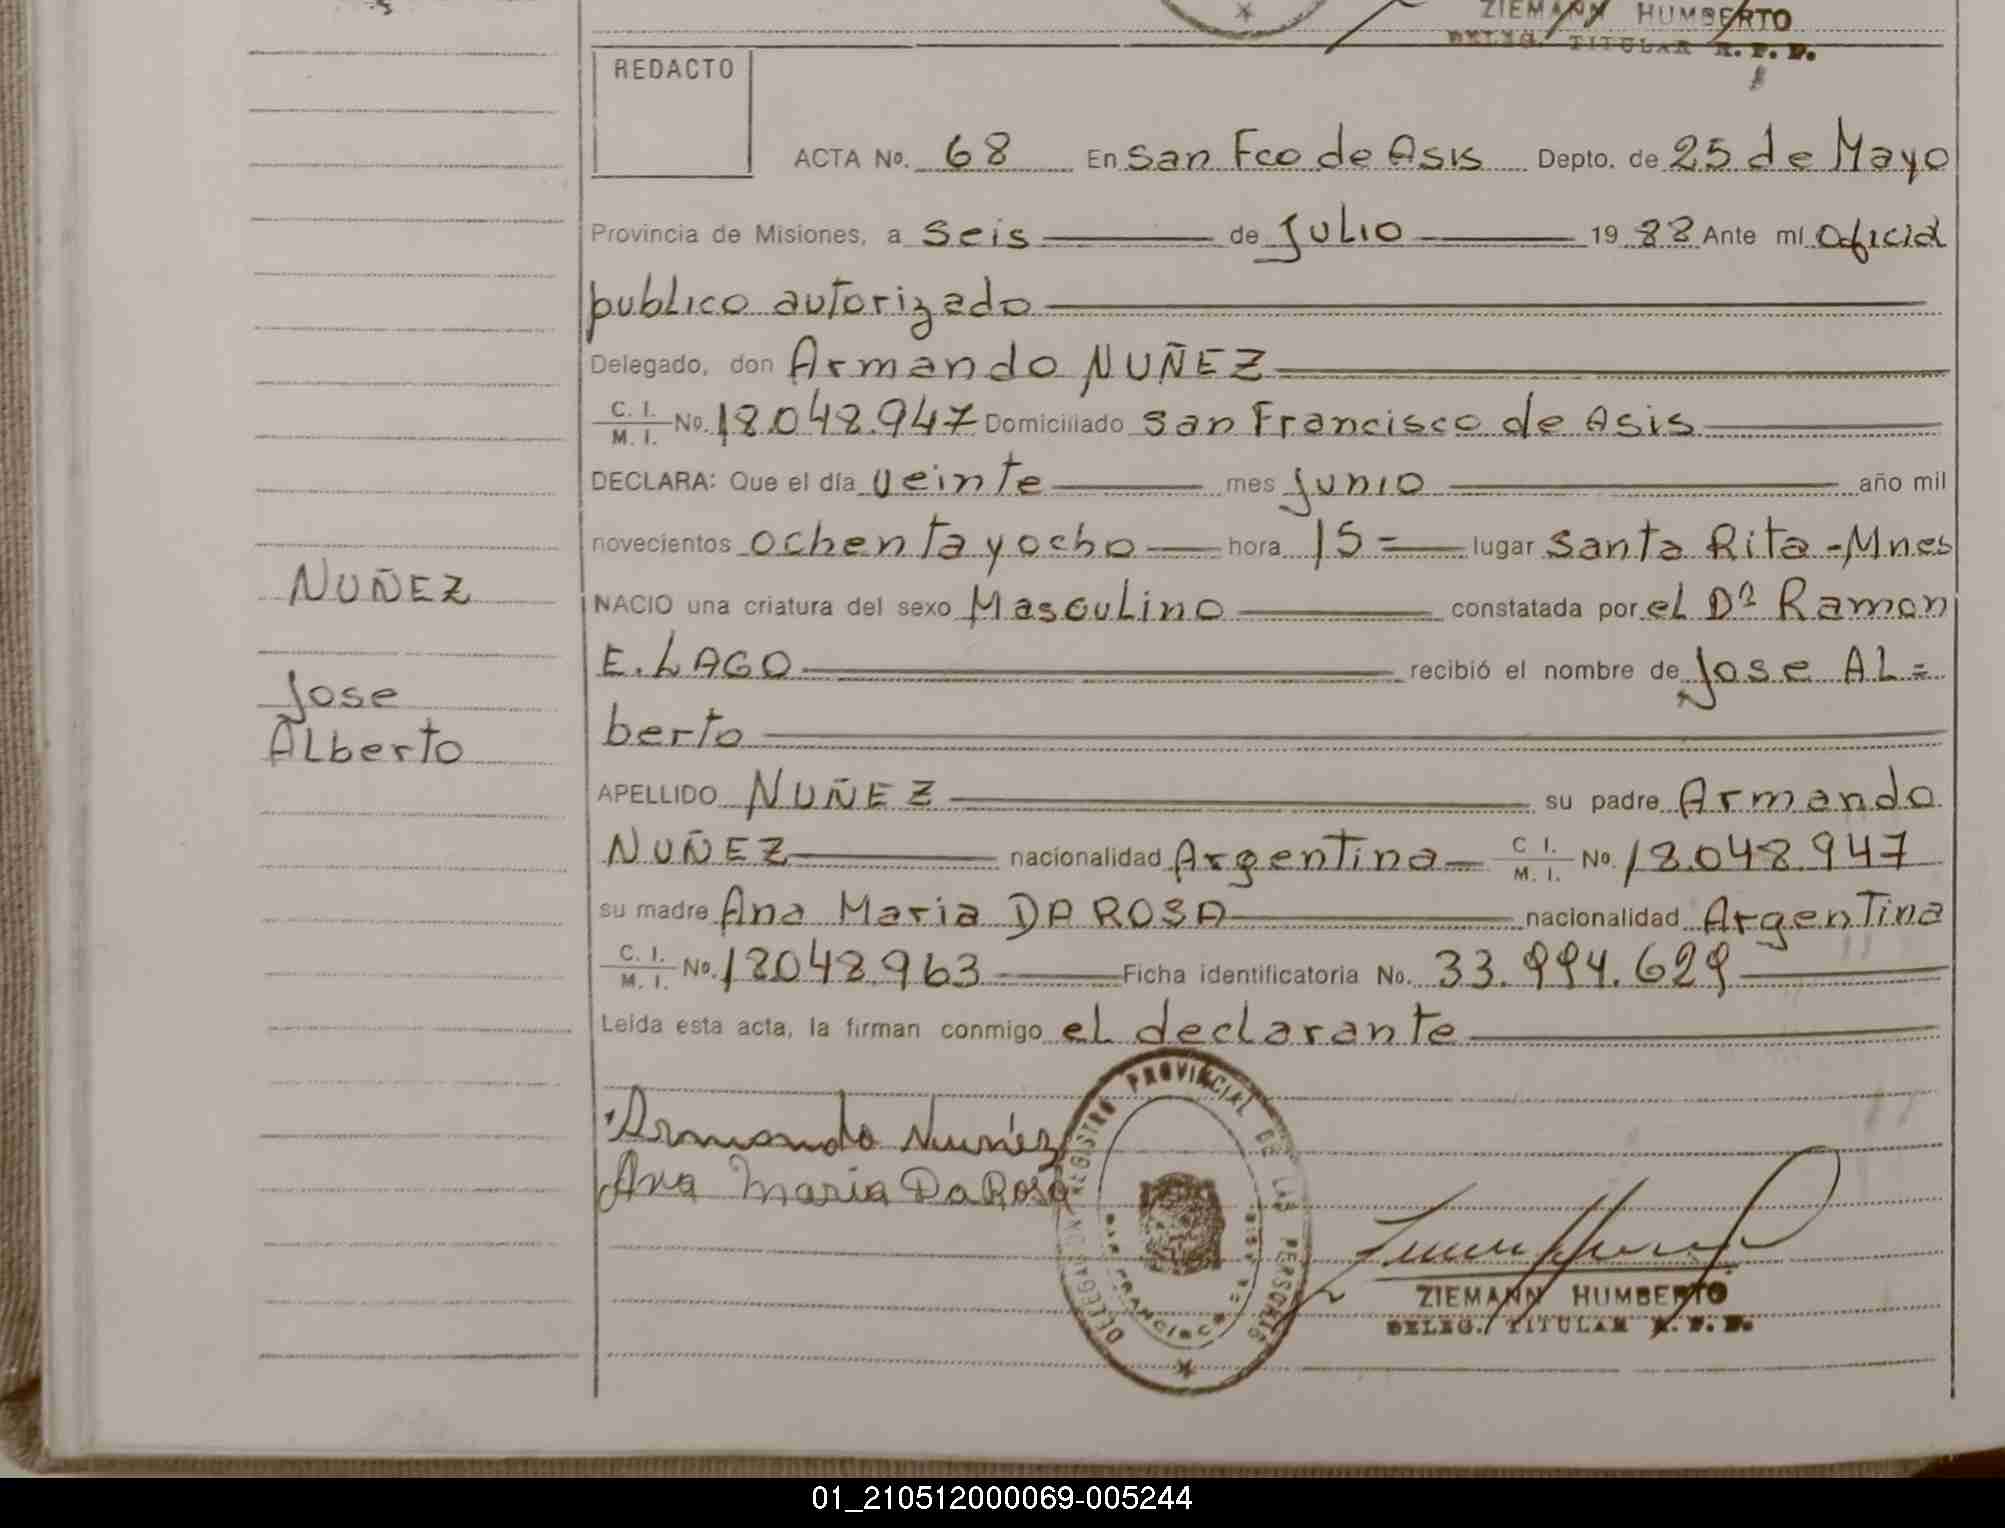 ZIEMANN HUMBERTO
DELEG. TITULAR R. P. P.
REDACTO
ACTA No. 68 En San Fco de Asis Depto. de 25 de Mayo
Provincia de Misiones, a seis de Julio 19 88 Ante mi Oficial
publico autorizado
Delegado, don Armando NUÑEZ
C. I.
M. I. No. 18.048.947 Domiciliado San Francisco de Asis
DECLARA: Que el día veinte mes Junio año mil
novecientos ochenta y ocho hora 15= lugar Santa Rita-Mnes
NUÑEZ
NACIO una criatura del sexo Masculino constatada por el Dº Ramon
E. LAGO recibió el nombre de Jose AL=
Jose
berto
ALberto
APELLIDO NUÑEZ su padre Armando
NUÑEZ nacionalidad Argentina C I.
M. I. No. 18.048.947
su madre Ana Maria DA ROSA nacionalidad Argentina
C. I.
M. I. No. 18.048.963 Ficha identificatoria No. 33.994.629
Leída esta acta, la firman conmigo el declarante
Armando Nuñez
Ana Maria Da Rosa
DELEGACION REGISTRO PROVINCIAL DE LAS PERSONAS
SAN FRANCISCO DE ASIS
ZIEMANN HUMBERTO
DELEG. TITULAR R. P. P.
01_210512000069-005244